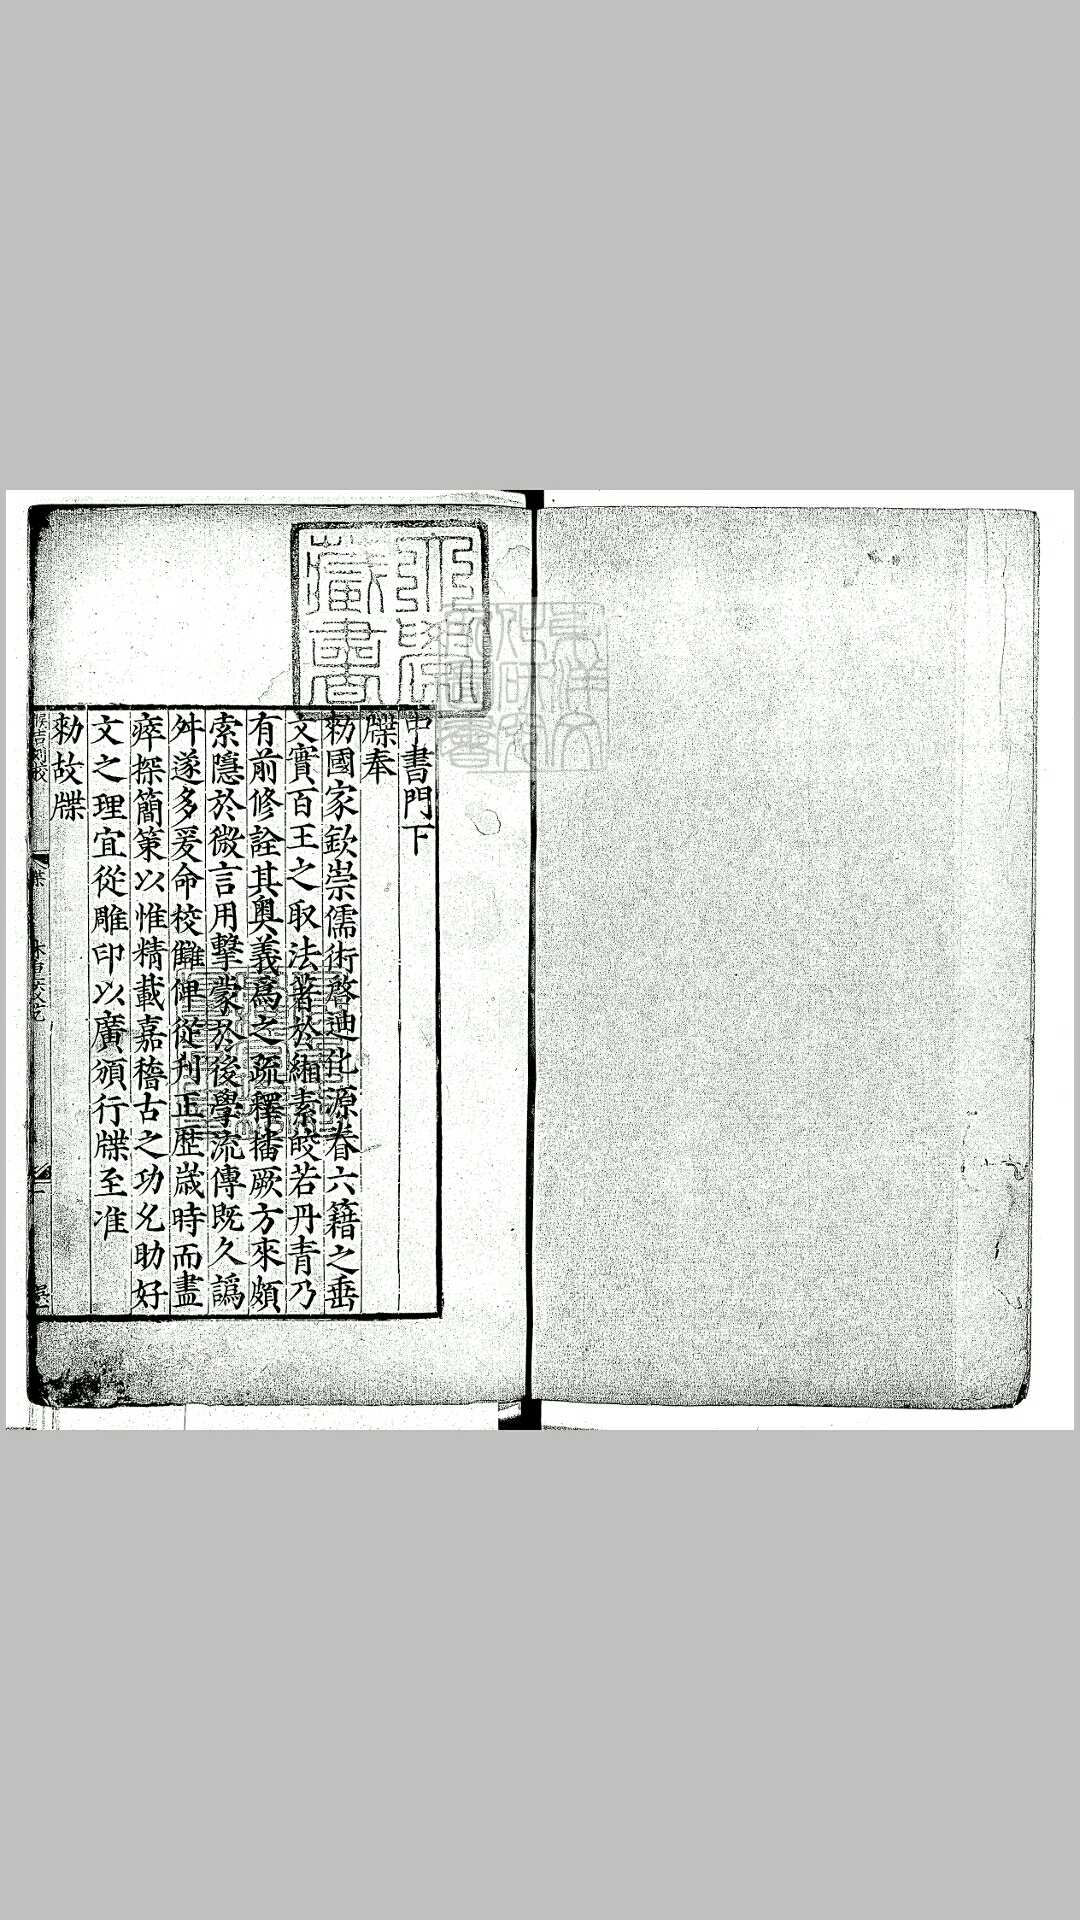 中書門下
牒奉
勑國家欽崇儒術啓迪化源眷六籍之垂
文實百王之取法著於緗素皎若丹青乃
有前修詮其奧義爲之疏釋播厥方來頗
索隱於微言用擊蒙於後學流傳既久譌
舛遂多爰命校讎俾從刋正歷歲時而盡
瘁探簡策以惟精載嘉稽古之功允助好
文之理宜從雕印以廣頒行牒至准
勑故牒
藏書